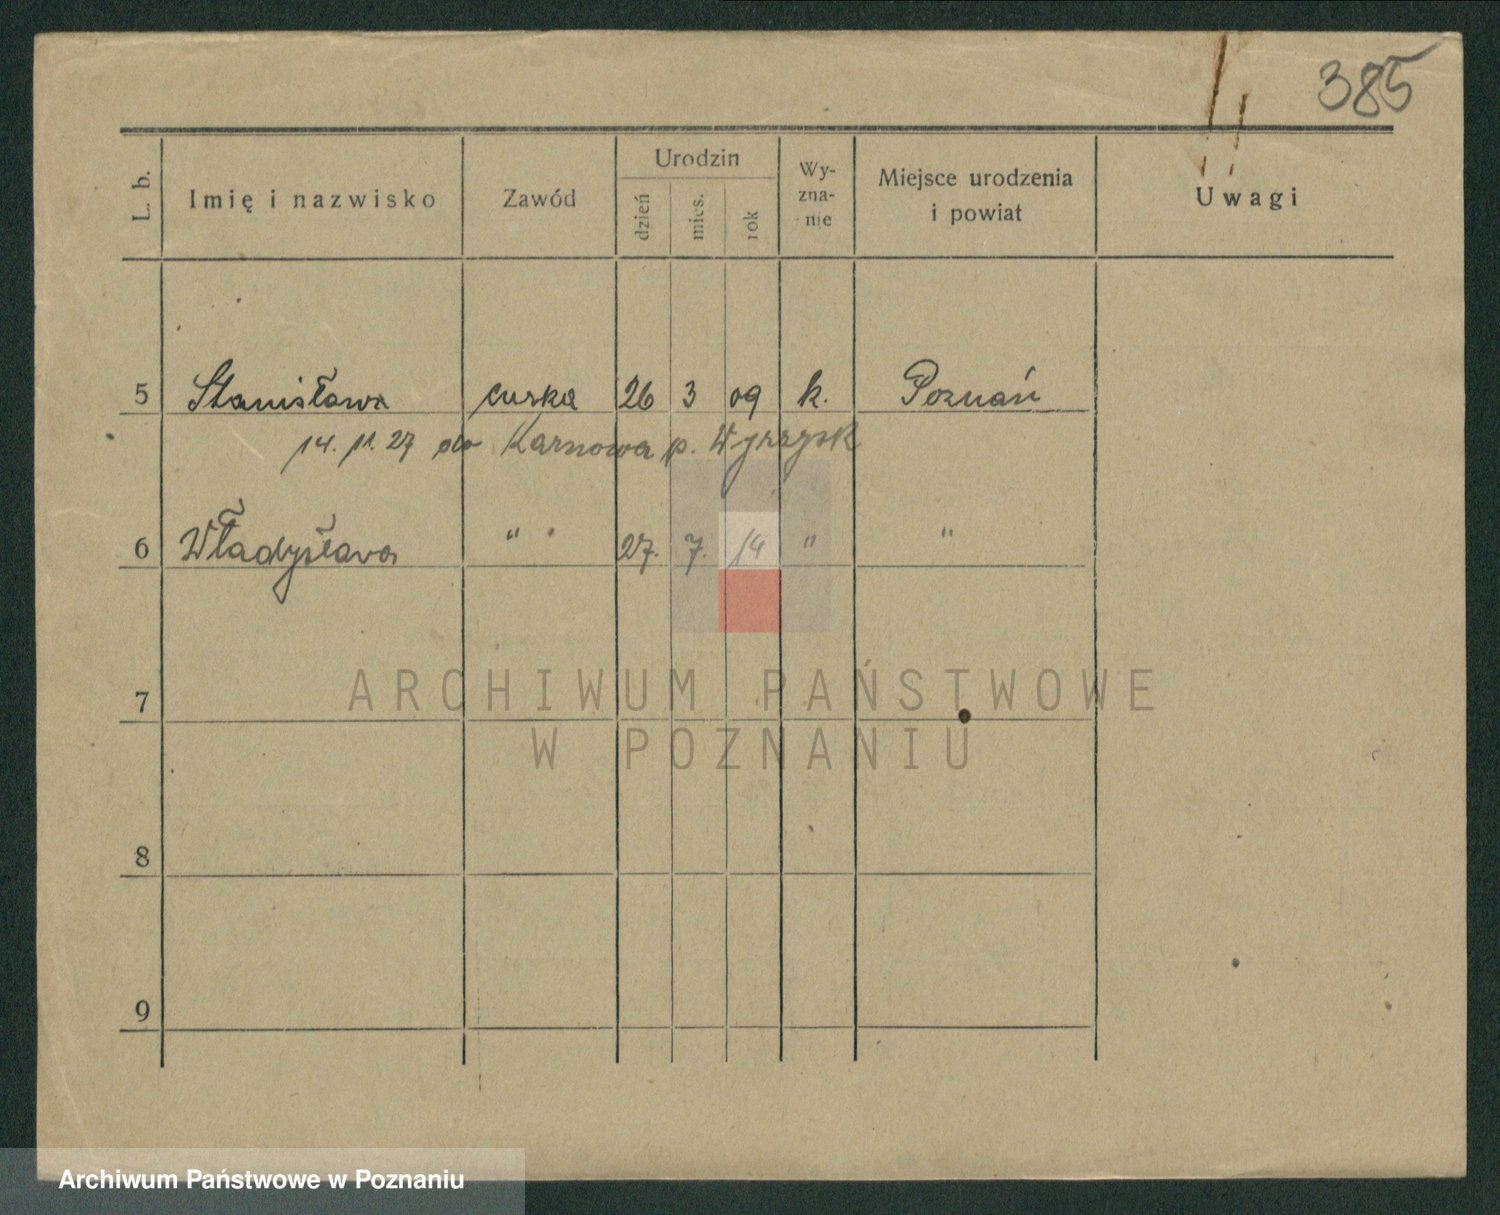 385
L. b. Imię i nazwisko Zawód Urodzin dzień mies. rok Wy-zna-nie Miejsce urodzenia i powiat Uwagi
5 Stanisława curka 26 3 09 k. Poznań
14. 11. 27 do Karnowa p. Wyrzysk
6 Władysława " 27. 7. 14 " "
7
ARCHIWUM PAŃSTWOWE
W POZNANIU
8
9
Archiwum Państwowe w Poznaniu